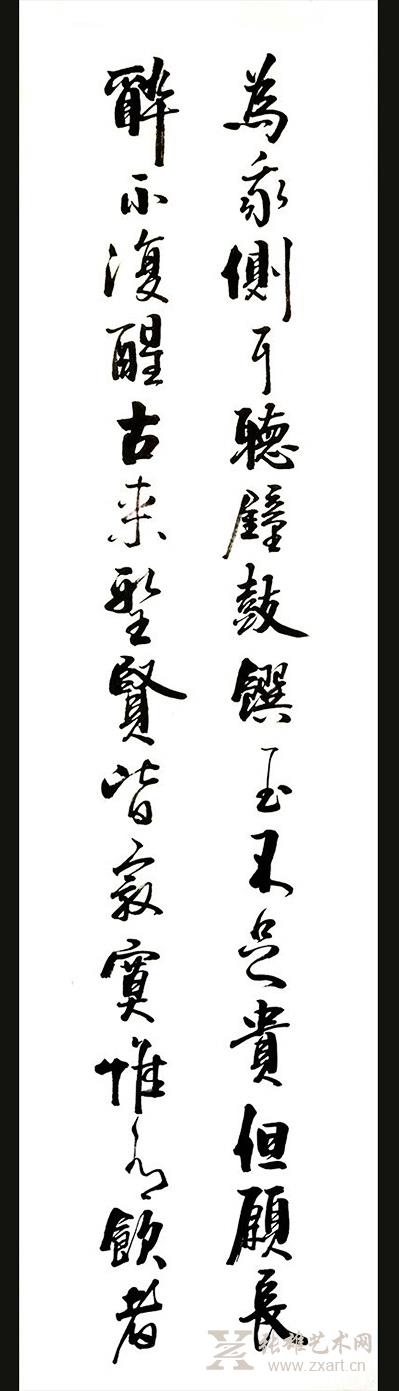 為我側耳聽鐘鼓饌玉不足貴但願長
醉不復醒古來聖賢皆寂寞惟有飲者
张雄艺术网
www.zxart.cn